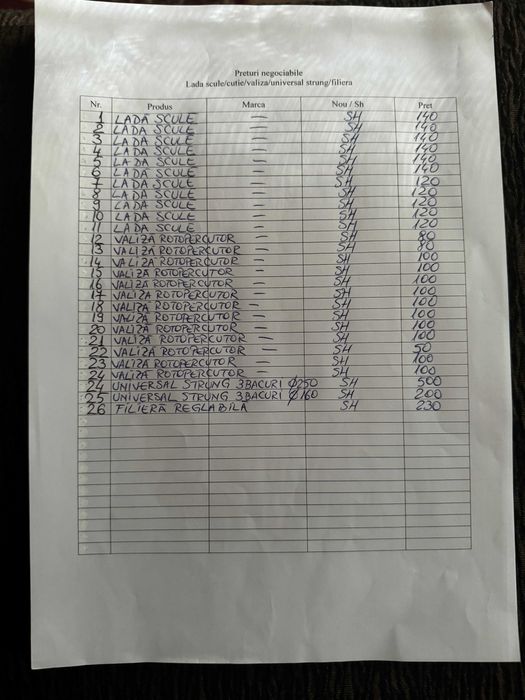 Preturi negociabile
Lada scule/cutie/valiza/universal strung/filiera
Nr. Produs Marca Nou / Sh Pret
1 LADA SCULE — SH 140
2 LADA SCULE — SH 140
3 LADA SCULE — SH 140
4 LADA SCULE — SH 140
5 LADA SCULE — SH 140
6 LADA SCULE — SH 140
7 LADA SCULE — SH 120
8 LADA SCULE — SH 120
9 LADA SCULE — SH 120
10 LADA SCULE — SH 120
11 LADA SCULE — SH 120
12 VALIZA ROTOPERCUTOR — SH 80
13 VALIZA ROTOPERCUTOR — SH 80
14 VALIZA ROTOPERCUTOR — SH 100
15 VALIZA ROTOPERCUTOR — SH 100
16 VALIZA ROTOPERCUTOR — SH 100
17 VALIZA ROTOPERCUTOR — SH 100
18 VALIZA ROTOPERCUTOR — SH 100
19 VALIZA ROTOPERCUTOR — SH 100
20 VALIZA ROTOPERCUTOR — SH 100
21 VALIZA ROTOPERCUTOR — SH 100
22 VALIZA ROTOPERCUTOR — SH 50
23 VALIZA ROTOPERCUTOR — SH 100
24 VALIZA ROTOPERCUTOR — SH 100
24 UNIVERSAL STRUNG 3BACURI Ø250 SH 500
25 UNIVERSAL STRUNG 3BACURI Ø160 SH 200
26 FILIERA REGLABILA SH 230